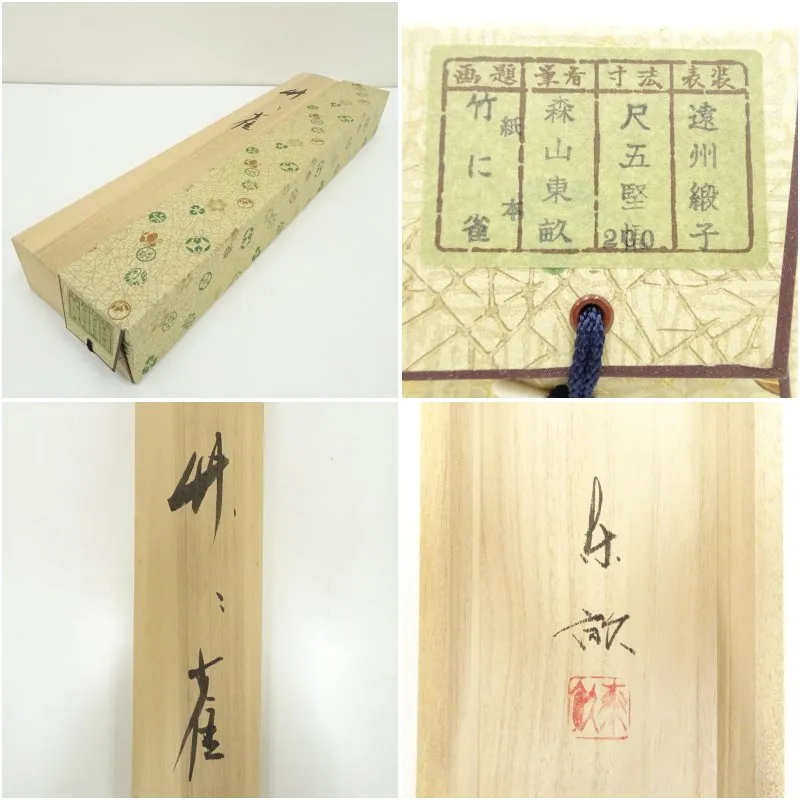 竹に雀
画題
竹に雀
紙本
筆者
森山東畝
寸法
尺五竪幅
200
表装
遠州緞子
竹に雀
東畝
東畝